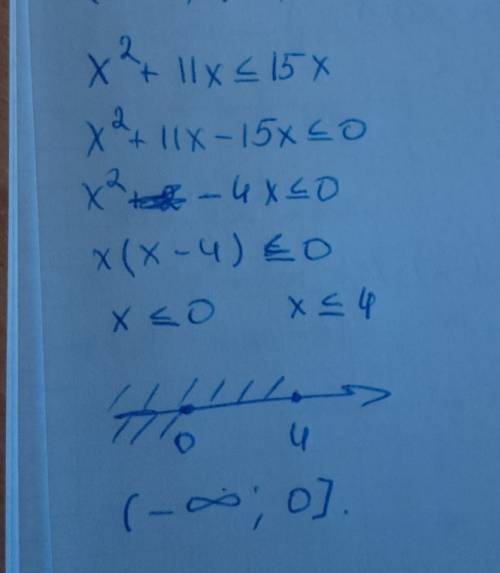 x² + 11x ≤ 15x
x² + 11x - 15x ≤ 0
x² - 4x ≤ 0
x(x - 4) ≤ 0
x ≤ 0 x ≤ 4
0 4
(-∞; 0].